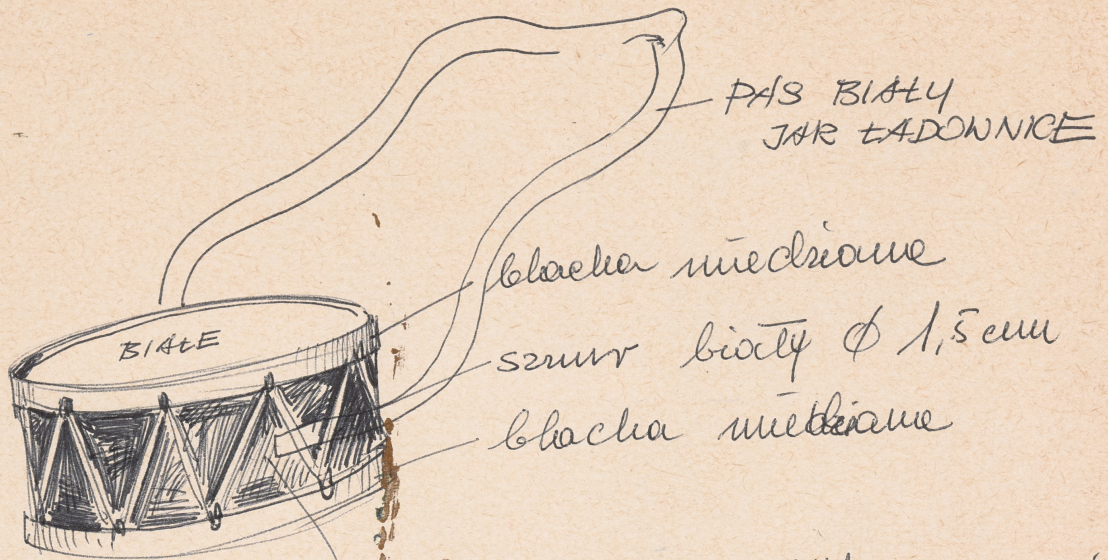 PAS BIAŁY
JAK ŁADOWNICE
blacha miedziana
BIAŁE
sznur biały Ø 1,5 cm
blacha miedziana